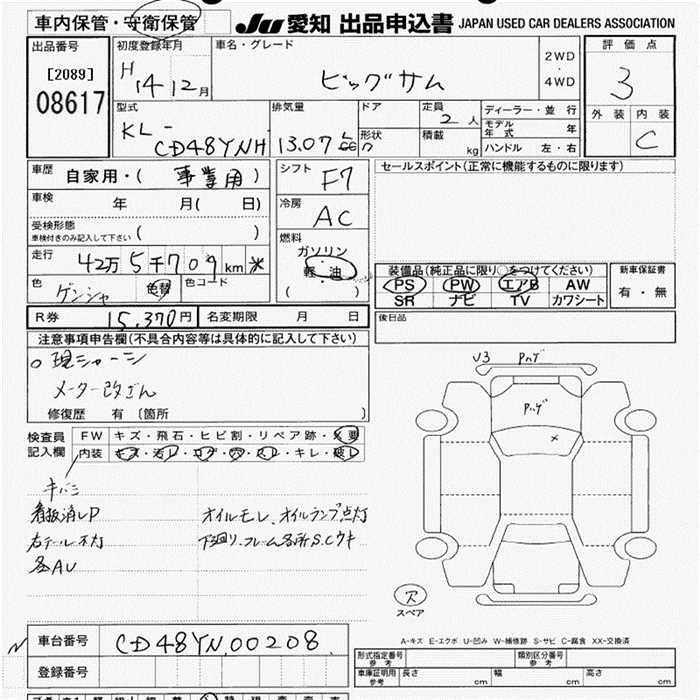 車内保管・守衛保管
JU 愛知 出品申込書 JAPAN USED CAR DEALERS ASSOCIATION
出品番号
[2089]
08617
初度登録年月
H 14 12月
車名・グレード
ビッグサム
2WD
・
4WD
評価点
3
外装 内装
C
型式
KL-
CD48YNH
排気量
13.07 L
cc
ドア
形状
定員
2人
積載
kg
ディーラー・並行
モデル
年式 年
ハンドル 左・右
車歴 自家用・( 事業用 )
車検 年 月( 日)
受検形態
車検付きのみ記入して下さい ( )
走行 42万5千709km 米
色 ゲンシャ 色替 色コード
シフト F7
冷房 AC
燃料
ガソリン
・
軽油
( )
セールスポイント(正常に機能するものに限ります)
装備品(純正品に限り○をつけてください)
PS PW エアB AW
SR ナビ TV カワシート
新車保証書
有・無
R券 15,370円 名変期限 月 日
後日品
注意事項申告欄(不具合内容等は具体的に記入して下さい)
○現シャーシ
メーター改ざん
修復歴 有 〔箇所 〕
検査員
記入欄
FW キズ・飛石・ヒビ割・リペア跡・×要
内装 キズ・汚レ・コゲ・穴・スレ・キレ・破レ
キバミ
看板済しP
右テール不灯
各AU
オイルモレ、オイルランプ点灯
下廻り、フレーム各所S.Cウキ
U3 Pハゲ
Pハゲ
×
ス
スペア
A-キズ E-エクボ U-凹み W-補修跡 S-サビ C-腐食 XX-交換済
車台番号 CD48YN,00208
登録番号
形式指定番号
参考
類別区分番号
参考
車庫証明用
参考
長さ cm 幅 cm 高さ cm